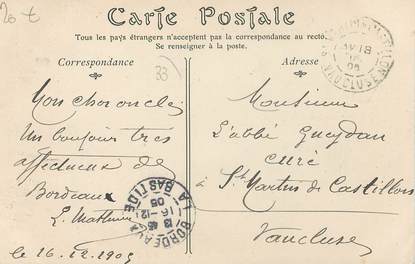 20 €
Carte Postale
Tous les pays étrangers n'acceptent pas la correspondance au recto.
Se renseigner à la poste.
Correspondance
Adresse
33
Mon cher oncle
Un bonjour très
affectueux de
Bordeaux
le 16.12.1905
Monsieur
L'abbé Gueydan
curé
à St Martin de Castillon
Vaucluse
BORDEAUX
LA BASTIDE
13 45
16-12
05
VAUCLUSE